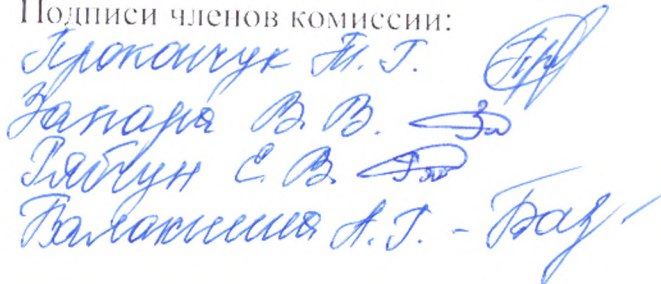 Подписи членов комиссии:
Прокопчук Т. Г.
Запара В. В.
Рябчун Е. В.
Балакшина А. Г. -